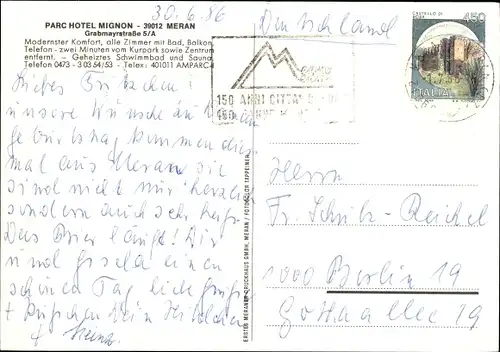 30.6.86
Deutschland
PARC HOTEL MIGNON - 39012 MERAN
Grabmayrstraße 5/A
Modernster Komfort, alle Zimmer mit Bad, Balkon,
Telefon - zwei Minuten vom Kurpark sowie Zentrum
entfernt. - Geheiztes Schwimmbad und Sauna
Telefon 0473 - 3 03 54/53 - Telex: 401011 AMPARC-I
CASTELLO DI
450
ITALIA
150 ANNI CITTA'
Liebes Fritzchen!
unsere Wünsche zu Deinem
Geburtstag kommen dies
mal aus Meran. Sie
sind nicht nur herzlich
sondern auch sehr
Das Bier läuft! Dir
und Gisela einen
schönen Tag liebe Grüße
+ Küßchen Dein
+ Heinz
ERSTES MERANER DRUCKHAUS GMBH, MERAN / FOTOCOLOR TAPPEINER
Herrn
Fr. Schulz-Reichel
1000 Berlin 19
Gotha Allee 19